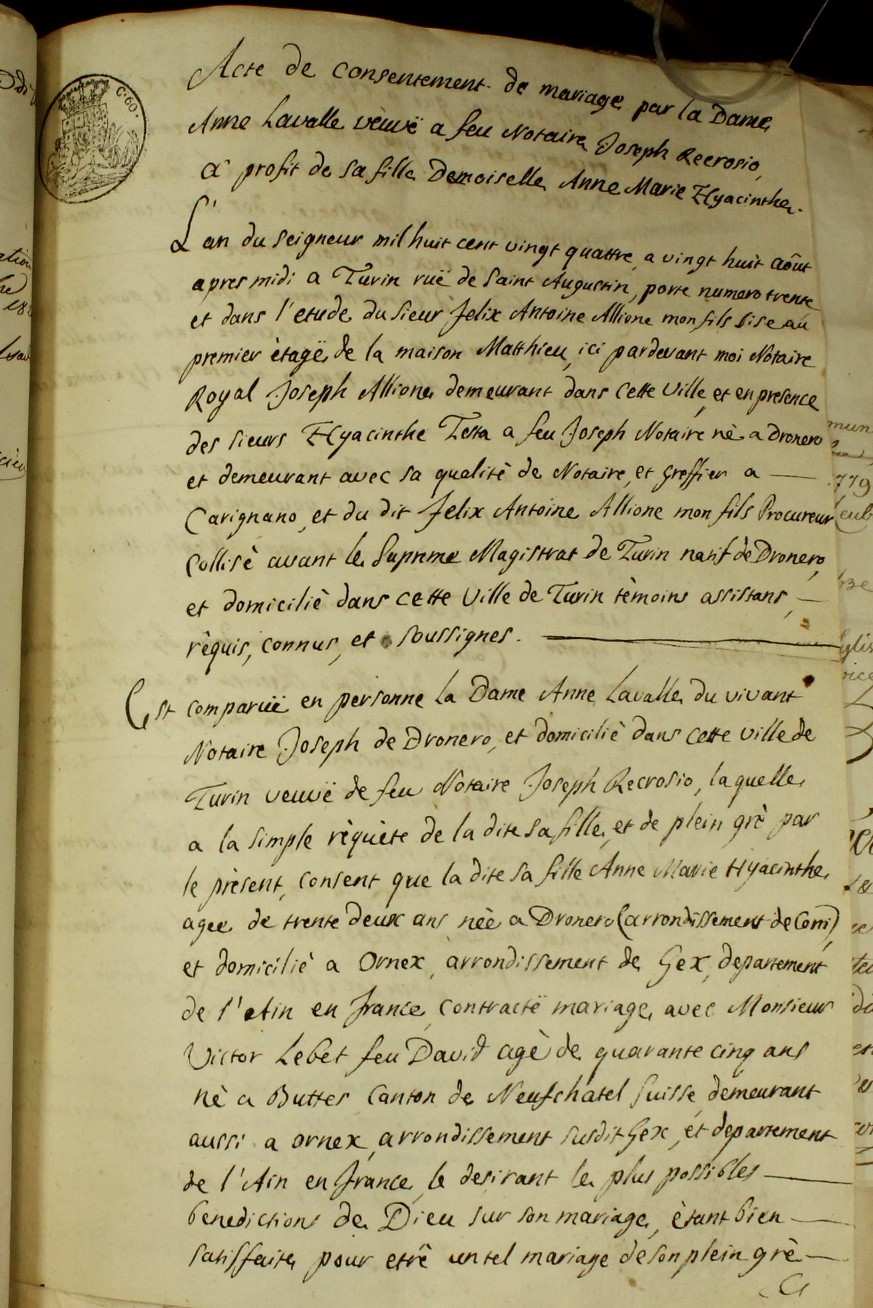 C. 60.
Acte de consentement de mariage par la Dame
Anne Lavalle vèuvë a feu Notaire Joseph Recrosio,
a profit de sa fille Demoiselle Anne Marie Hyacinthe.
L'an du seigneur mil huit cent vingt quattre, a vingt huit Aôut
apres midi a Turin ruë de Saint Augustin, porte numero trente
et dans l'etude du Sieur Felix Antoine Allione mon fils sise au
premier ètagë de la maison Matthieu, ici pardevant moi Notaire
Royal Joseph Allione demeurant dans cette Ville, et en presence
des sieurs Hyacinthe Testa a feu Joseph Notaire nè a Dronero
et demeurant avec sa qualitè de Notaire, et Greffier a
Carignano, et du dit Felix Antoine Allione mon fils Procureur
Collisè avant le Suprème Magistrat de Turin natif de Dronero,
et domiciliè dans cette Ville de Turin tèmoins assistans,
rèquis, connus, et soussignes.
Est comparuë en personne la Dame Anne Lavalle du vivant
Notaire Joseph de Dronero, et domiciliè dans cette ville de
Turin veuvë de feu Notaire Joseph Recrosio, laquelle
a la simple rèquète de la dite sa fille, et de plein grè par
le prèsent, consent que la dite sa fille Anne Marie Hyacinthe
agee de trente deux ans nèe a Dronero (arrondissement de Coni)
et domiciliè a Ornex, arrondissement de Gex, departement
de l'Ain en france, contractë mariage avec Monsieur
Victor Lebet feu David agè de quarante cinq ans
nè a Buttes Canton de Neufchatel Suisse demeurant
aussi a Ornex, arrondissement susdit Gex, et departement
de l'Ain en france, le desirant le plus possibles
benedictions de Dieu sur son mariage, ètant bien
satisfaite pour etrê un tel mariage de son plein grè